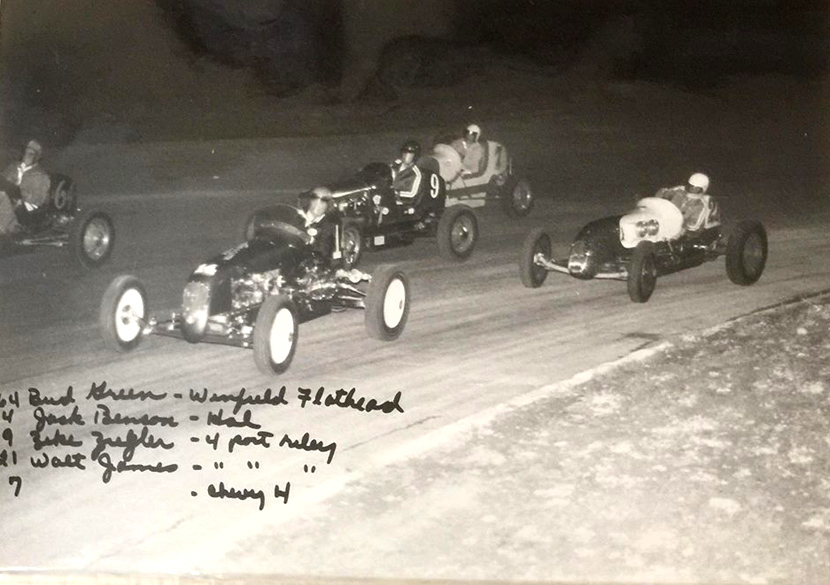 6
9
64 Bud Green - Winfield Flathead
4 Jack Benson - Hal
9 Zeke Zigler - 4 port riley
21 Walt James - " " "
7 - Chevy 4